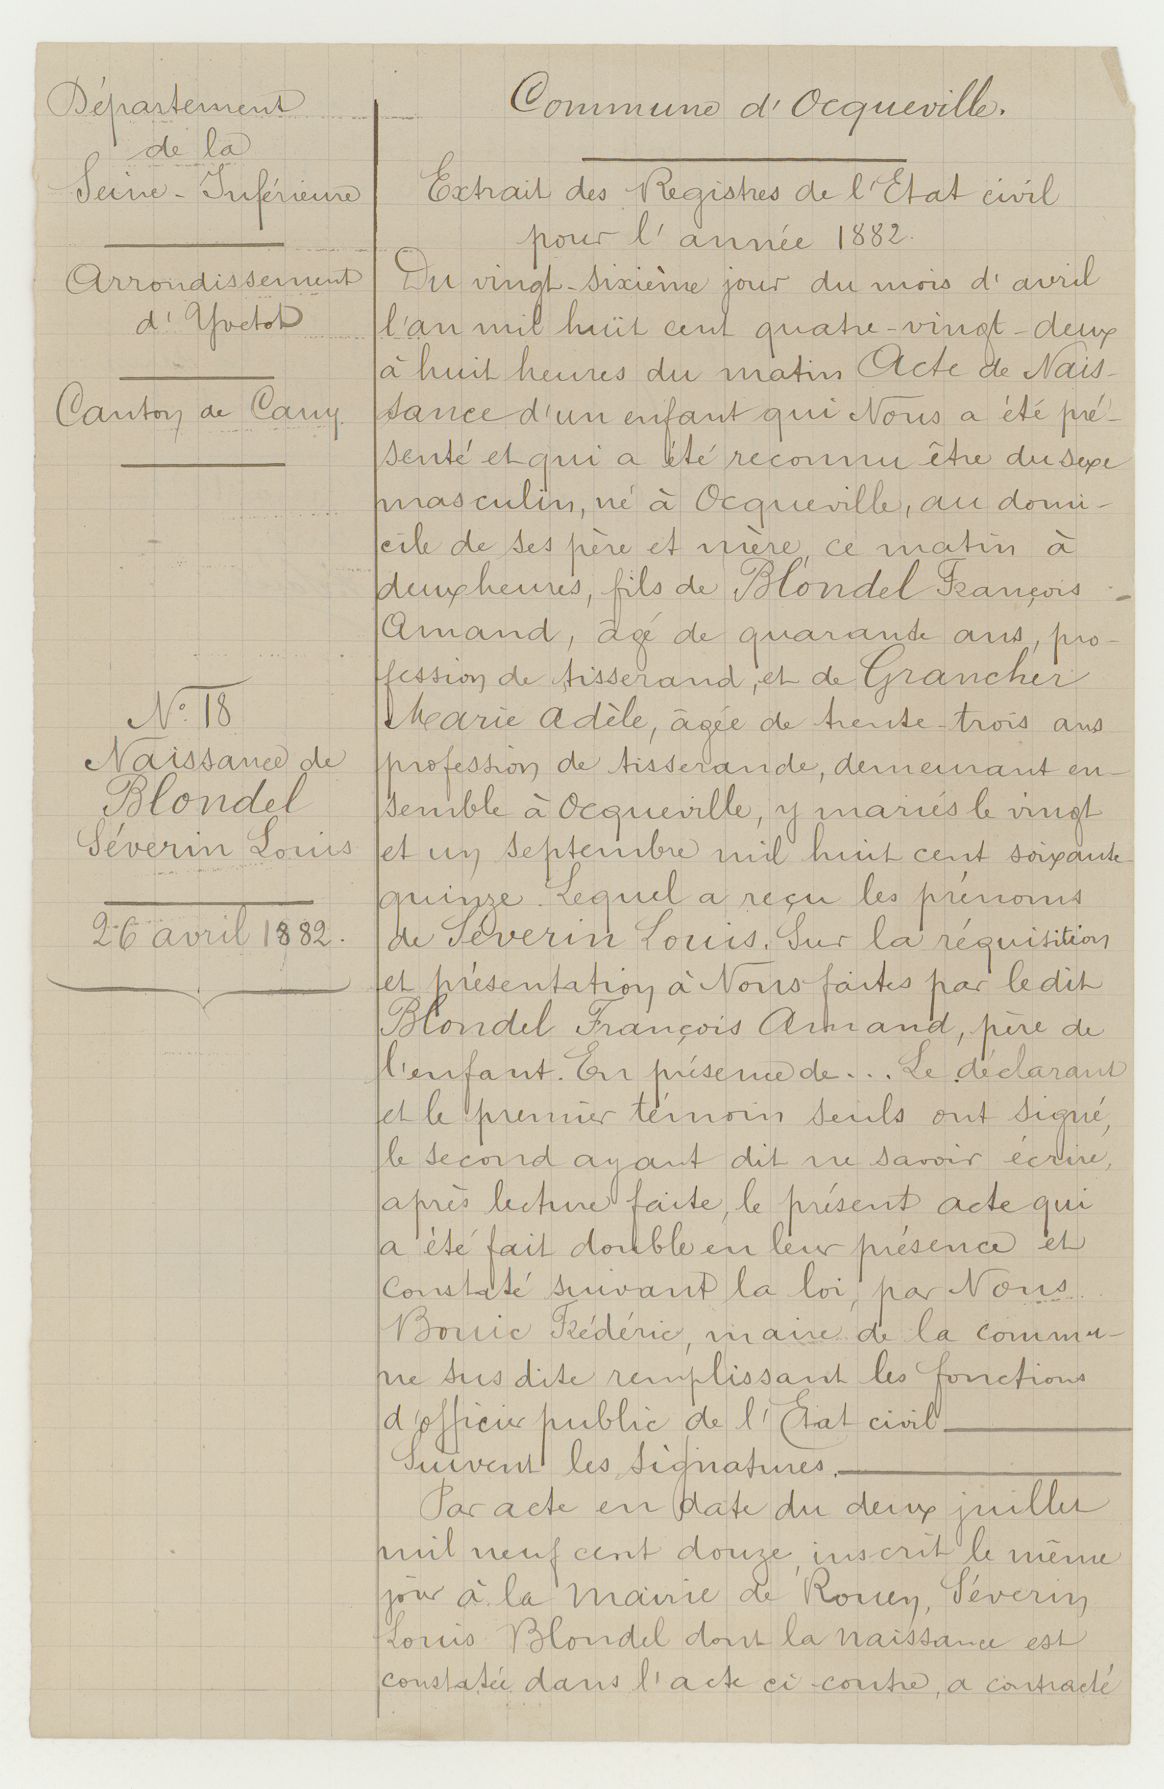 Département
de la
Seine-Inférieure
Arrondissement
d'Yvetot
Canton de Cany
N° 18
Naissance de
Blondel
Séverin Louis
26 avril 1882.
Commune d'Ocqueville.
Extrait des Registres de l'Etat civil
pour l'année 1882.
Du vingt-sixième jour du mois d'avril
l'an mil huit cent quatre-vingt-deux
à huit heures du matin Acte de Nais-
sance d'un enfant qui Nous a été pré-
senté et qui a été reconnu être du sexe
masculin, né à Ocqueville, au domi-
cile de ses père et mère, ce matin à
deux heures, fils de Blondel François
Amand, âgé de quarante ans, pro-
fession de tisserand, et de Grancher
Marie Adèle, âgée de trente-trois ans
profession de tisserande, demeurant en-
semble à Ocqueville, y mariés le vingt
et un septembre mil huit cent soixante
quinze. Lequel a reçu les prénoms
de Séverin Louis. Sur la réquisition
et présentation à Nous faites par le dit
Blondel François Amand, père de
l'enfant. En présence de... Le déclarant
et le premier témoin seuls ont signé,
le second ayant dit ne savoir écrire,
après lecture faite, le présent acte qui
a été fait double en leur présence et
constaté suivant la loi, par Nous
Bouic Frédéric, maire de la commu-
ne sus dite remplissant les fonctions
d'officier public de l'Etat civil
Suivent les signatures.
Par acte en date du deux juillet
mil neuf cent douze, inscrit le même
jour à la Mairie de Rouen, Séverin
Louis Blondel dont la naissance est
constatée dans l'acte ci-contre, a contracté